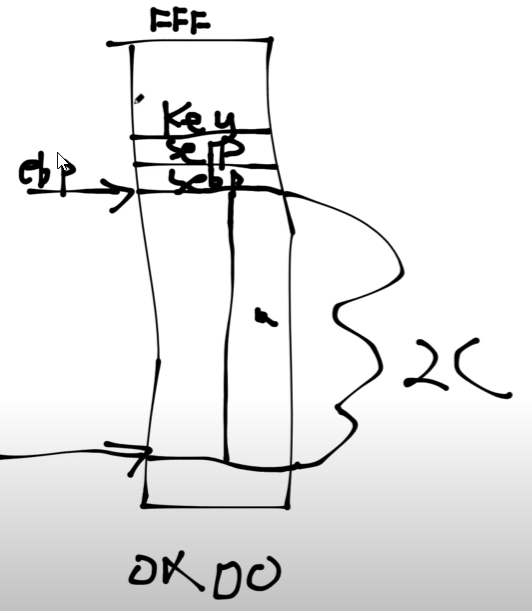 FFF
Key
seip
sebp
ebp
2C
0x00